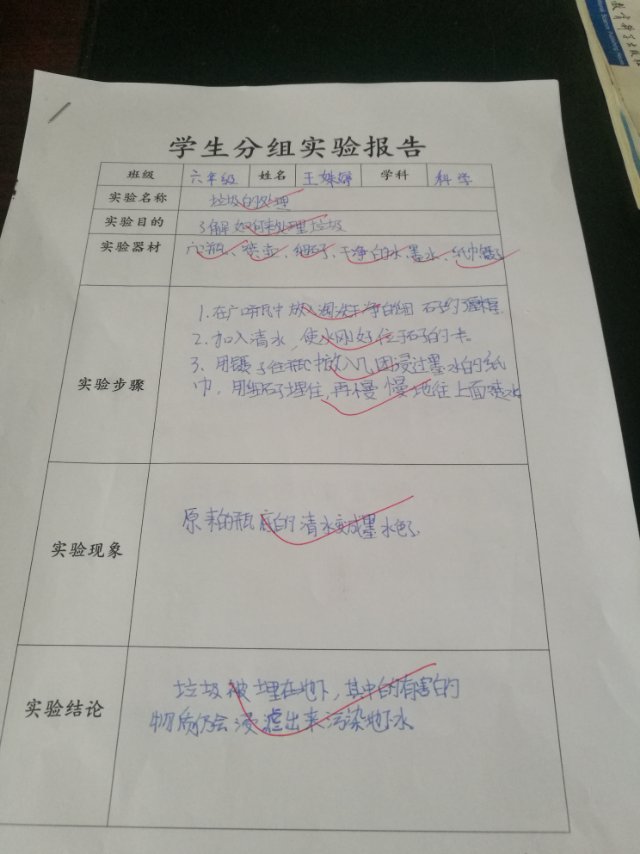 教育科学出版社
学生分组实验报告
班级 六年级 姓名 王姝婷 学科 科学
实验名称 垃圾的处理
实验目的 了解如何来处理垃圾
实验器材 广口瓶、喷壶、细石子、干净的水、墨水、纸巾、镊子
实验步骤
1.在广口瓶中放入淘洗干净的细石子约
2.加入清水,使水刚好位于石子的
3.用镊子往瓶中放入几团浸过墨水的纸
巾,用细石子埋住,再慢慢地往上面喷水
实验现象
原来的瓶底的清水变成墨水色了.
实验结论
垃圾被埋在地下,其中的有害的
物质仍会浸滤出来污染地下水